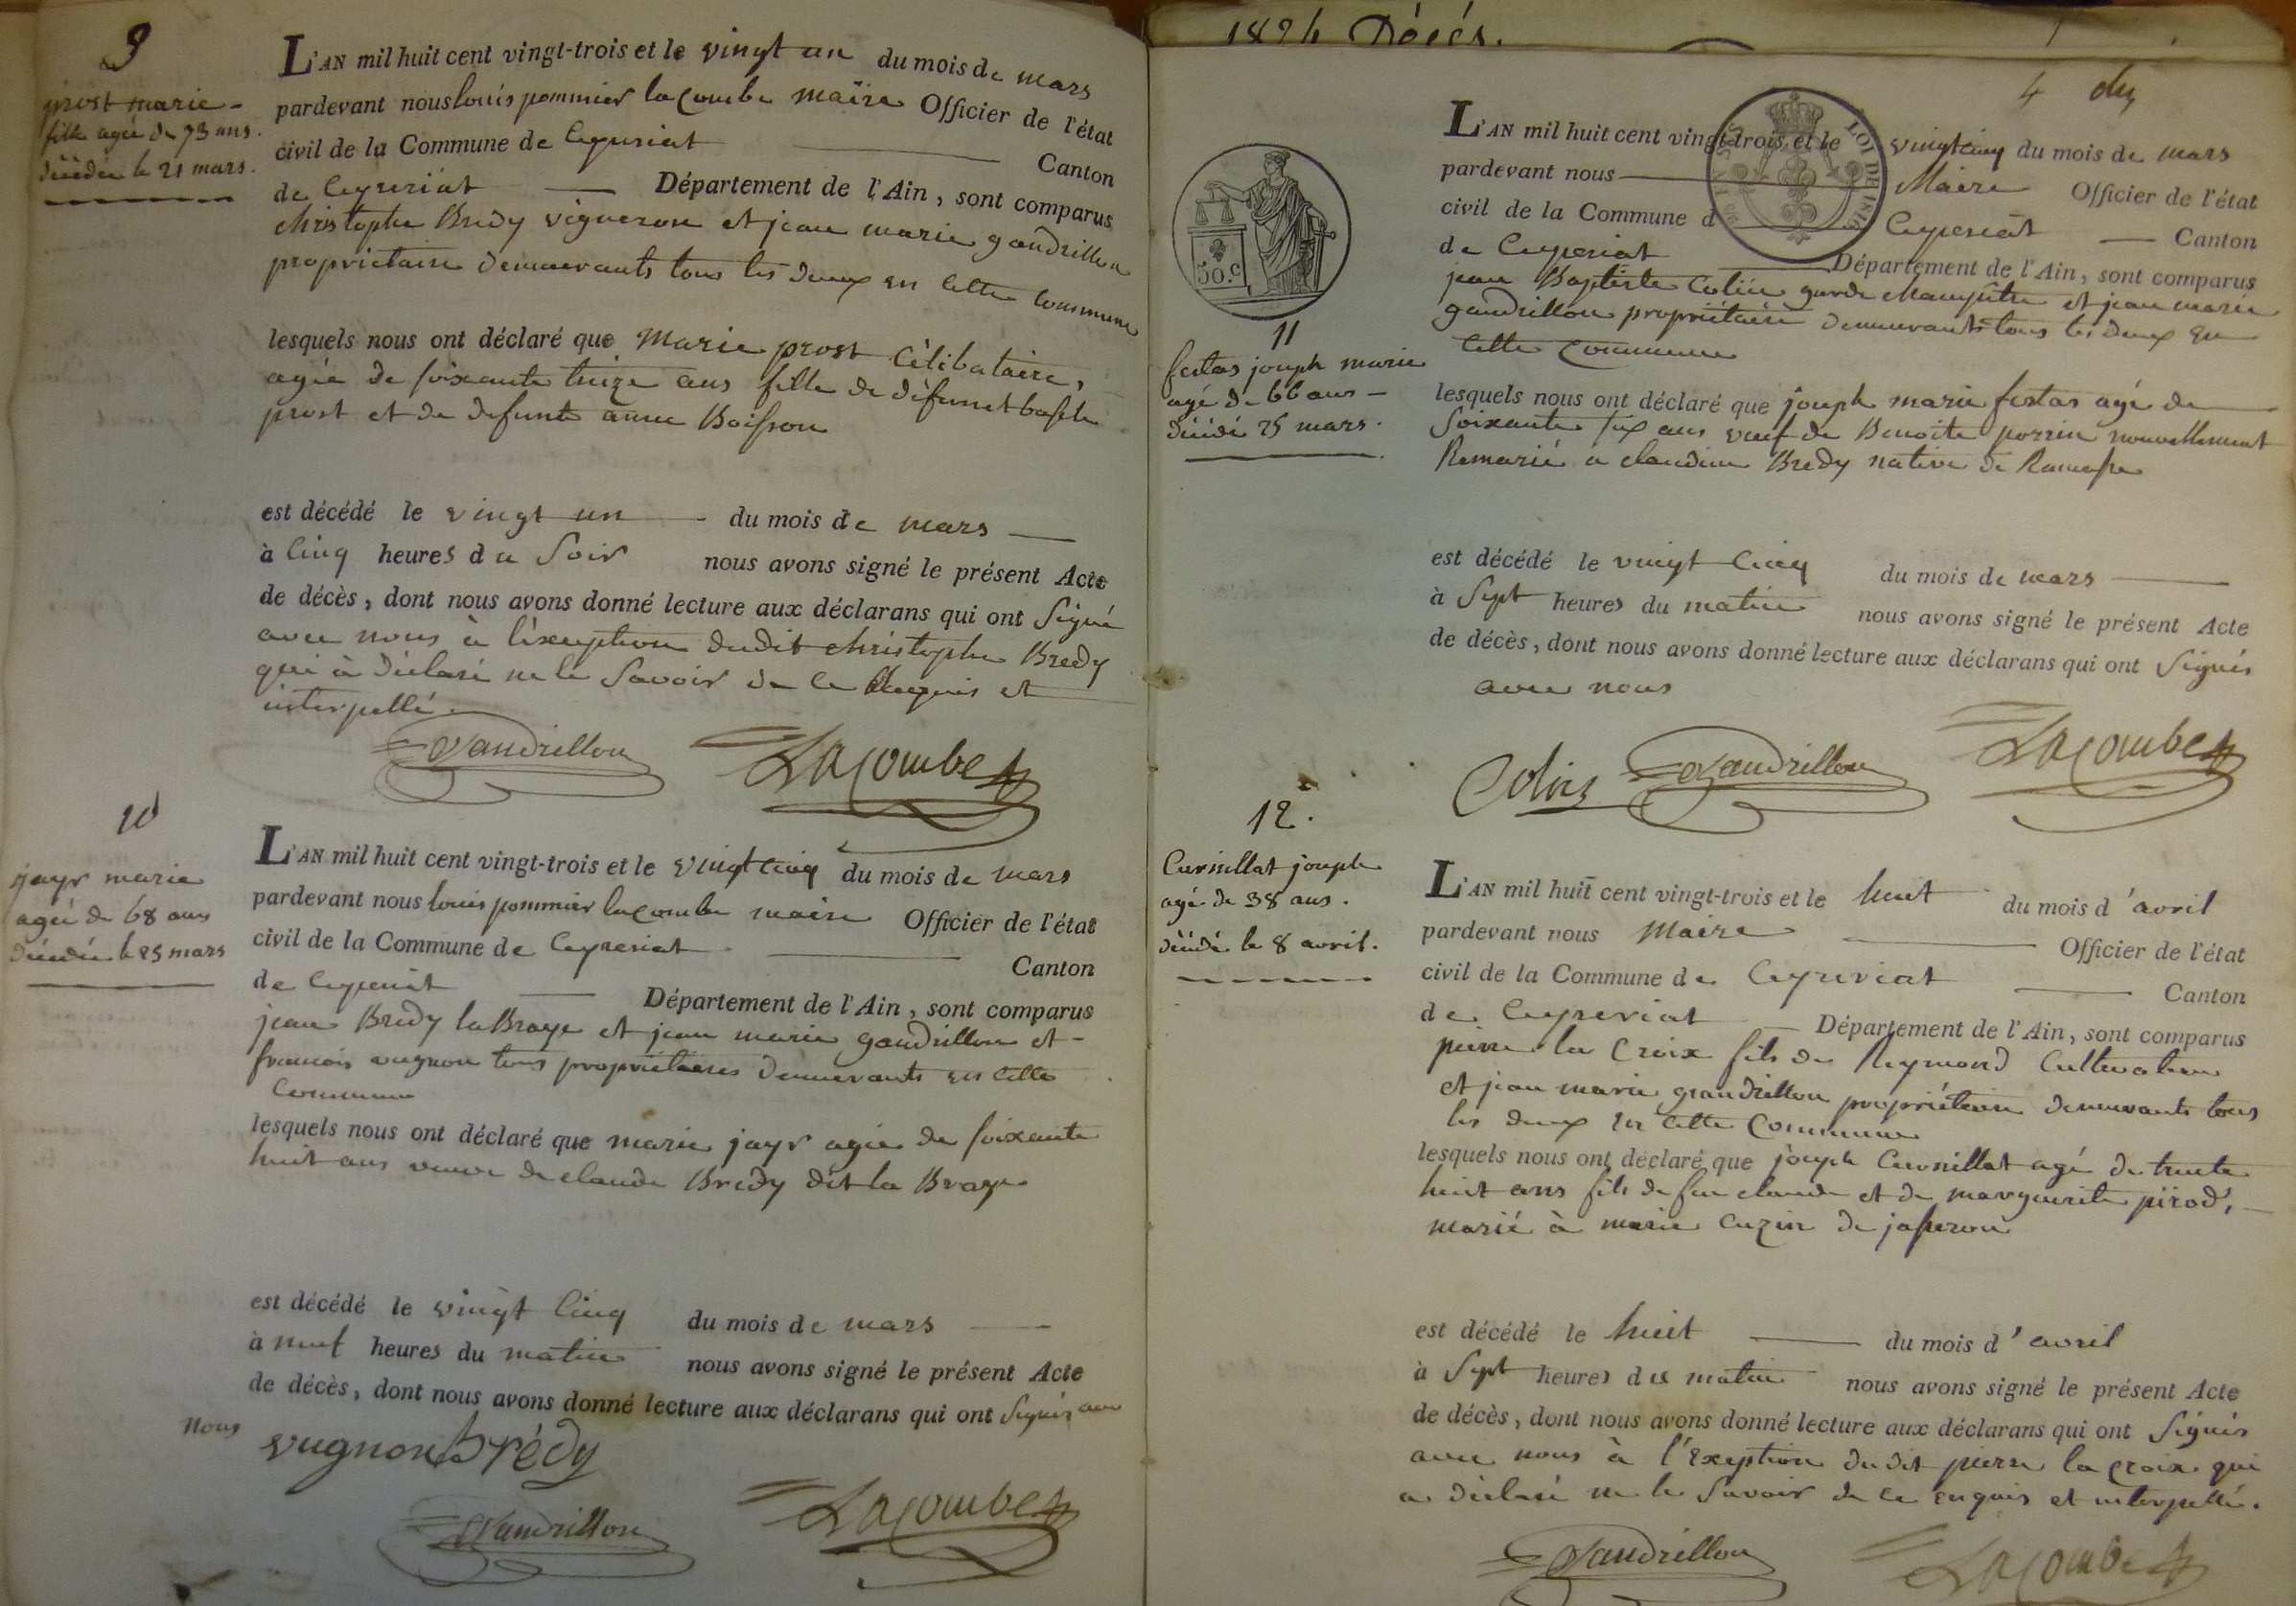 9
prost marie
fille agée de 73 ans.
décédée le 21 mars.
L'AN mil huit cent vingt-trois et le vingt un du mois de mars
pardevant nous louis pommier lacombe maire Officier de l'état
civil de la Commune de Ceyzeriat Canton
de Ceyzeriat Département de l'Ain, sont comparus
christophe Bredy vigneron et jean marie gandrillon
propriétaire demeurants tous les deux en cette commune
lesquels nous ont déclaré que Marie prost Célibataire,
agée de soixante treize ans fille de défunct
prost et de defunte anne Boisson
est décédé le vingt un du mois de mars
à cinq heures du soir nous avons signé le présent Acte
de décès, dont nous avons donné lecture aux déclarans qui ont signé
avec nous à l'éxeuption dudit christophe Bredy
qui à déclaré ne le savoir de ce enquis et
interpellé.
Gandrillon Lacombe
10
jayr marie
agée de 68 ans
décédée le 25 mars
L'AN mil huit cent vingt-trois et le vingt cinq du mois de mars
pardevant nous louis pommier lacombe maire Officier de l'état
civil de la Commune de Ceyzeriat Canton
de Ceyzeriat Département de l'Ain, sont comparus
jean Bredy la Braye et jean marie gandrillon et
francois vugnon tous propriétaires demeurants en cette
Commune
lesquels nous ont déclaré que marie jayr agée de soixante
huit ans veuve de claude Bredy dit la Braye
est décédé le vingt cinq du mois de mars
à neuf heures du matin nous avons signé le présent Acte
de décès, dont nous avons donné lecture aux déclarans qui ont signés avec
nous
vugnon Brédy
Gandrillon Lacombe
1824 Décés.
4
50.c
LOI DE 1816
L'AN mil huit cent vingt-trois et le vingt cinq du mois de mars
pardevant nous Maire Officier de l'état
civil de la Commune d Ceyzeriat Canton
de Ceyzeriat Département de l'Ain, sont comparus
jean Baptiste Colin garde champêtre et jean marie
gandrillon propriétaire demeurants tous les deux en
cette Commune
11
festas joseph marie
agé de 66 ans
décédé 25 mars.
lesquels nous ont déclaré que joseph marie festas agé de
soixante six ans veuf de Benoite perrin nouvellement
Remarié a claudine Bredy native de Ramasse
est décédé le vingt cinq du mois de mars
à sept heures du matin nous avons signé le présent Acte
de décès, dont nous avons donné lecture aux déclarans qui ont signés
avec nous
Colin Gandrillon Lacombe
12.
Cursillat joseph
agé de 38 ans.
décédé le 8 avril.
L'AN mil huit cent vingt-trois et le huit du mois d'avril
pardevant nous Maire Officier de l'état
civil de la Commune de Ceyzeriat Canton
de Ceyzeriat Département de l'Ain, sont comparus
pierre la Croix fils de Reymond Cultivateur
et jean marie grandrillon propriétaire demeurants tous
les deux en cette Commune
lesquels nous ont déclaré que joseph Cursillat agé de trente
huit ans fils de feu claude et de marguerite pirod,
marié à marie cuzin de jasseron
est décédé le huit du mois d'avril
à sept heures du matin nous avons signé le présent Acte
de décès, dont nous avons donné lecture aux déclarans qui ont signés
avec nous à l'éxeption du dit pierre la croix qui
a déclaré ne le savoir de ce enquis et interpellé.
Gandrillon Lacombe